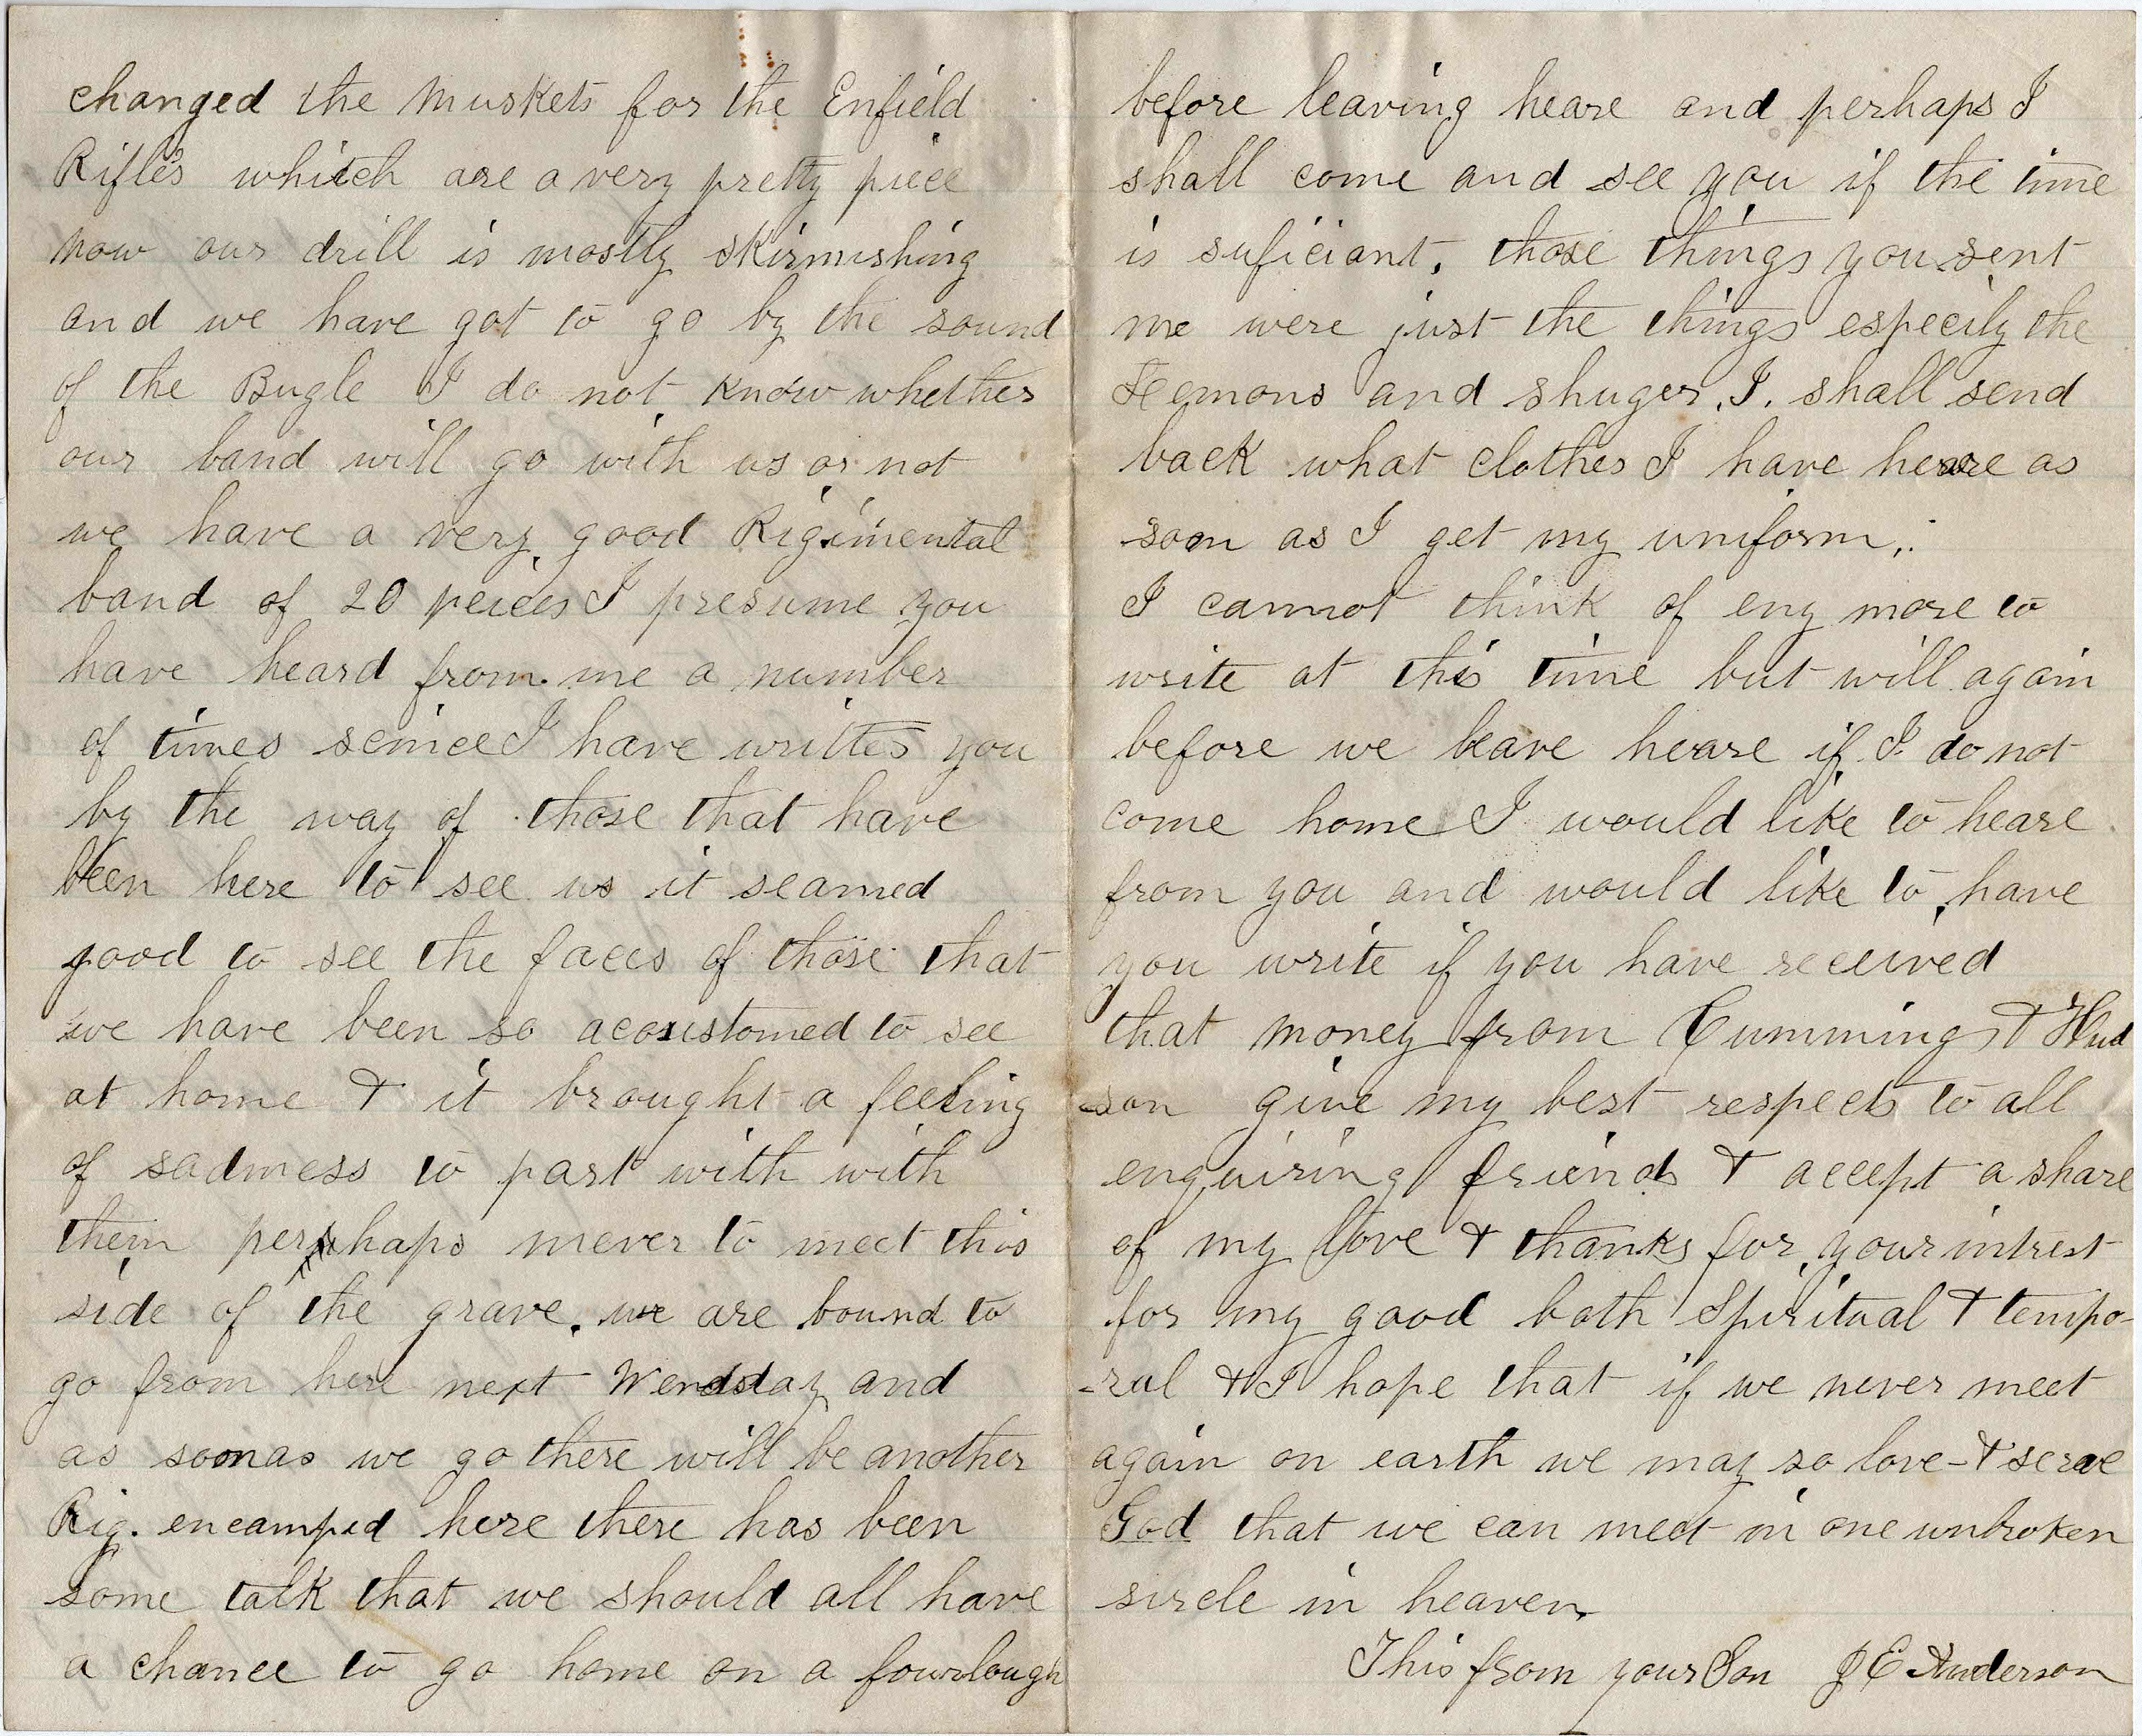 changed the Muskets for the Enfield
Rifles which are a very pretty piece
now our drill is mostly skirmishing
and we have got to go by the sound
of the Bugle I do not know whether
our band will go with us or not
we have a very good Rigimental
band of 20 peices I presume you
have heard from me a number
of times seince I have written you
by the way of those that have
been here to see us it seamed
good to see the faces of those that
we have been so accoustomed to see
at home & it brought a feeling
of sadness to part with with
them perhaps never to meet this
side of the grave. we are bound to
go from here next Wendsday and
as soon as we go there will be another
Rig. encamped here there has been
some talk that we should all have
a chance to go home on a fourlough
before leaving heare and perhaps I
shall come and see you if the time
is suficiant. those things you sent
me were just the things especily the
Leemons and shuger. I. shall send
back what clothes I have heare as
soon as I get my uniform.
I cannot think of eny more to
write at this time but will again
before we leave heare if I do not
come home I would like to heare
from you and would like to have
you write if you have received
that money from Cummings & Hud
-son give my best respects to all
enquiring friends & accept a share
of my love & thanks for your intrest
for my good both Spiritual & tempo-
-ral & I hope that if we never meet
again on earth we may so love & serve
God that we can meet in one unbroken
sircle in heaven.
This from your Son J E Anderson